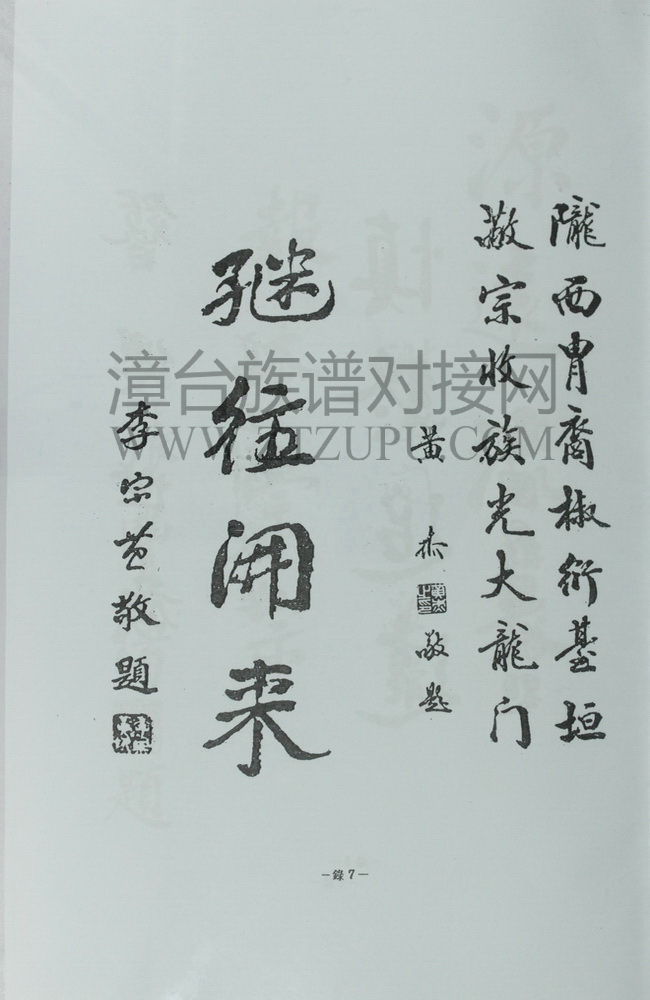 隴西胄裔椒衍臺垣
敬宗收族光大龍门
黄杰敬題
继往開来
李宗黄敬題
漳台族谱对接网
WWW.ZTZUPU.COM
—錄7—